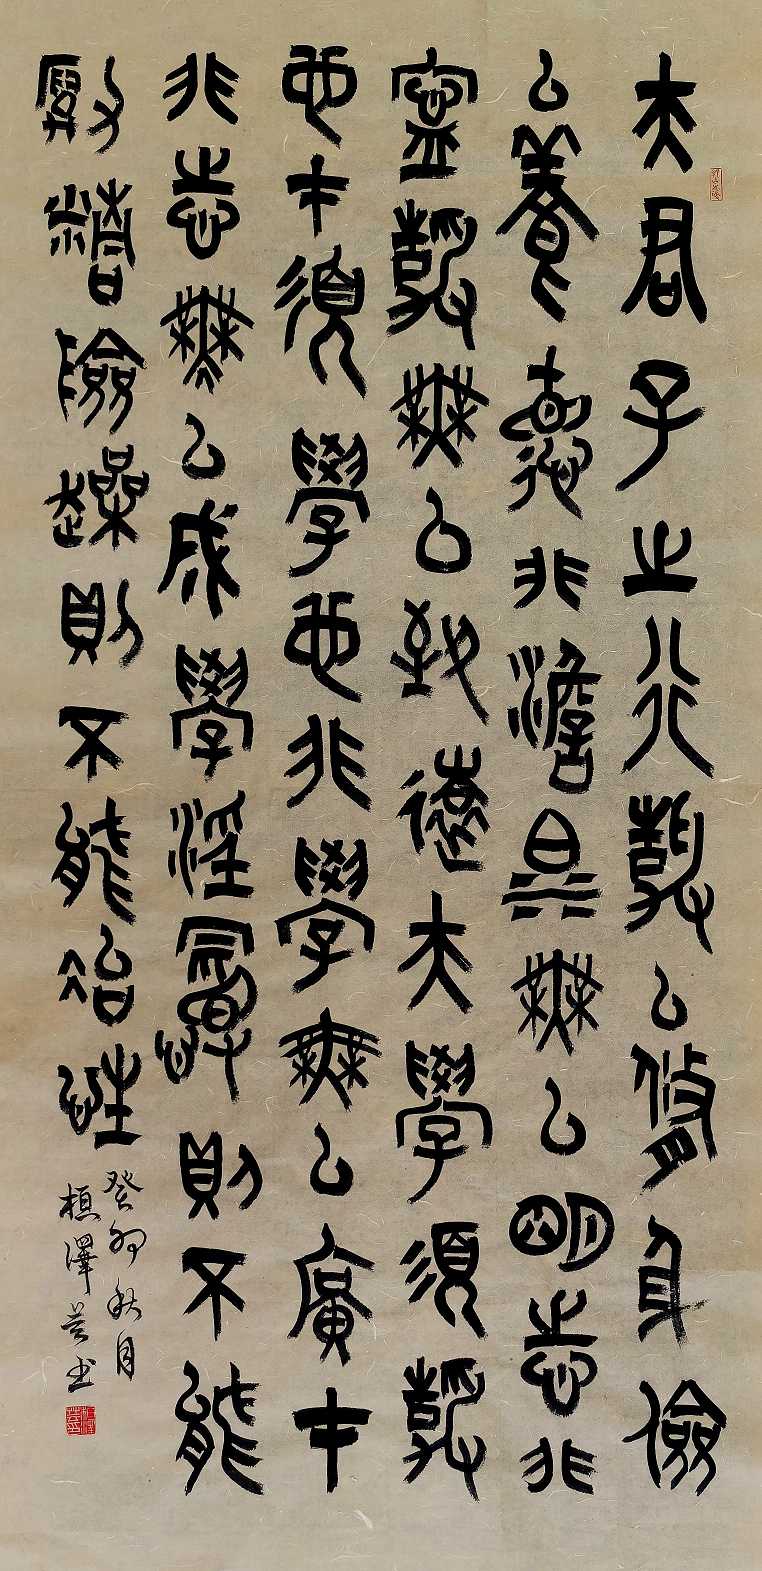 夫君子之行靜以修身儉
以養德非澹泊無以明志非
寧靜無以致遠夫學須靜
也才須學也非學無以廣才
非志無以成學淫慢則不能
勵精險躁則不能治性
癸卯秋月
桓澤芸书